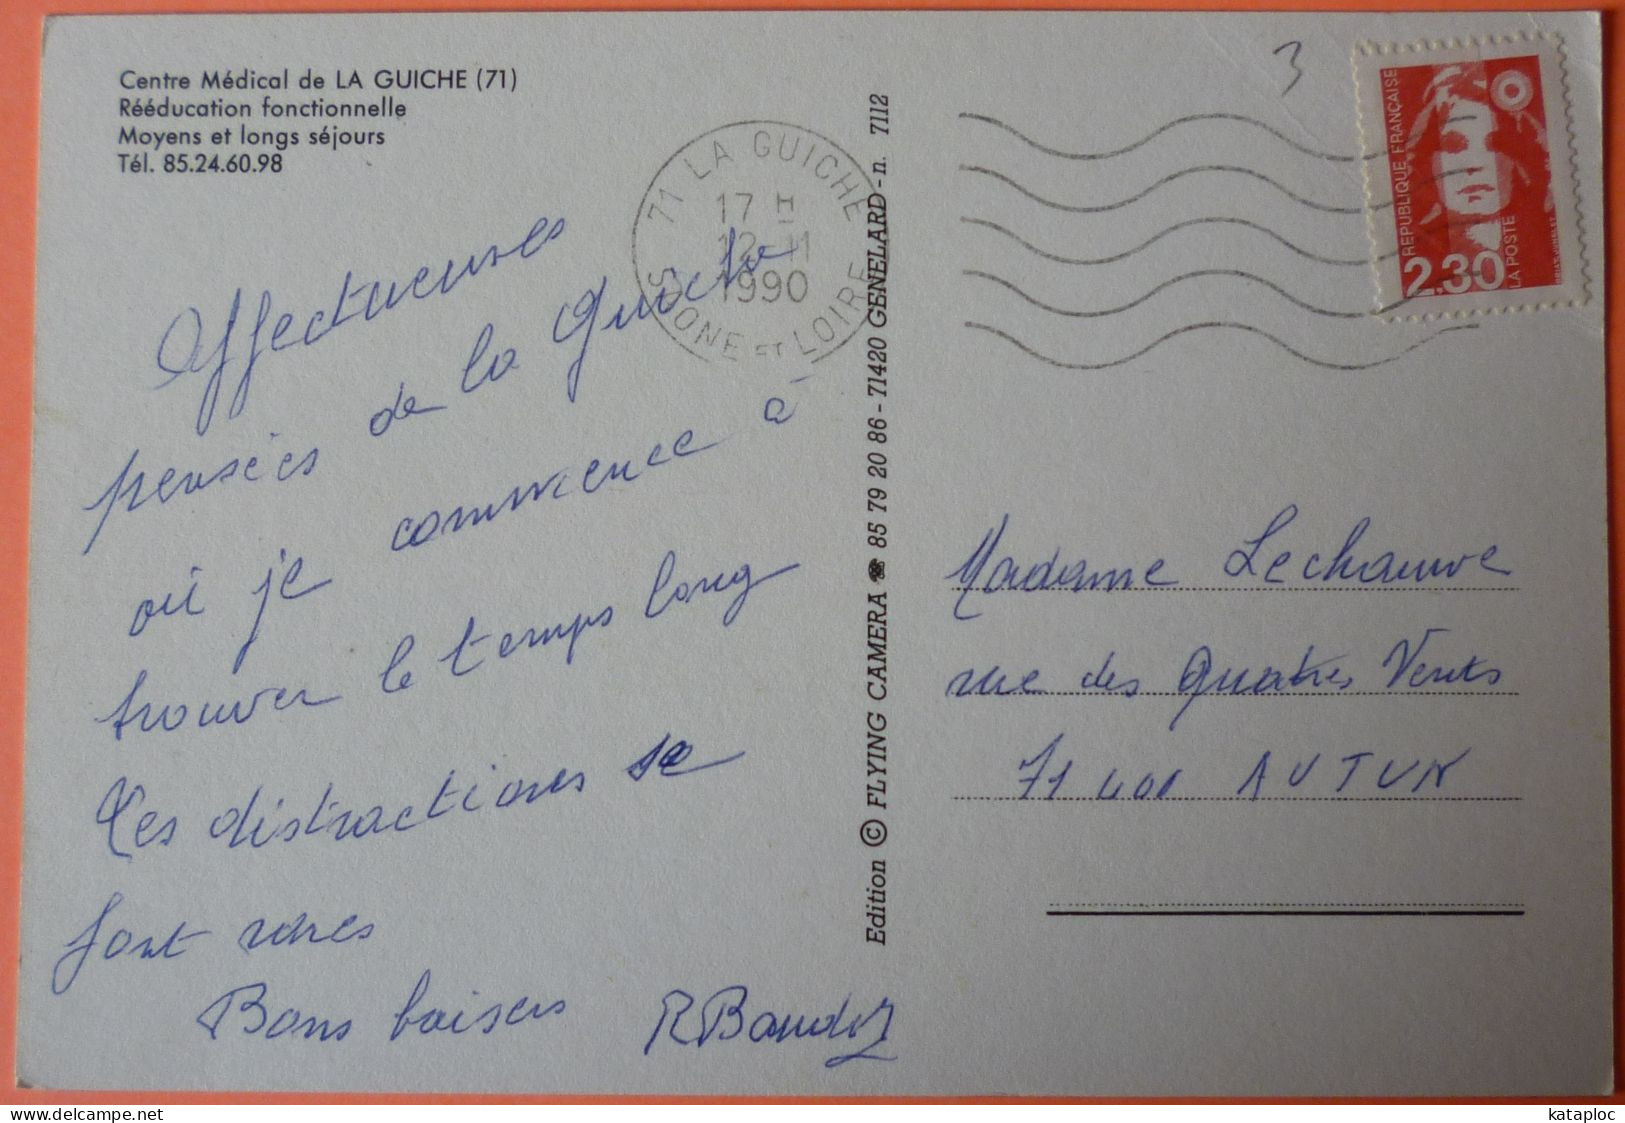 Centre Médical de LA GUICHE (71)
Rééducation fonctionnelle
Moyens et longs séjours
Tél. 85.24.60.98
Affectueuses
pensées de la Guiche
où je commence à
trouver le temps long
Les distractions se
font rares
Bons baisers R Baudot
71 LA GUICHE
17 H
12-11
1990
SAONE ET LOIRE
Edition © FLYING CAMERA ☎ 85 79 20 86 - 71420 GENELARD - n. 7112
3
REPUBLIQUE FRANÇAISE
LA POSTE
2.30
Madame Lechauve
rue des Quatres Vents
71400 AUTUN
delcampe.net
kataploc